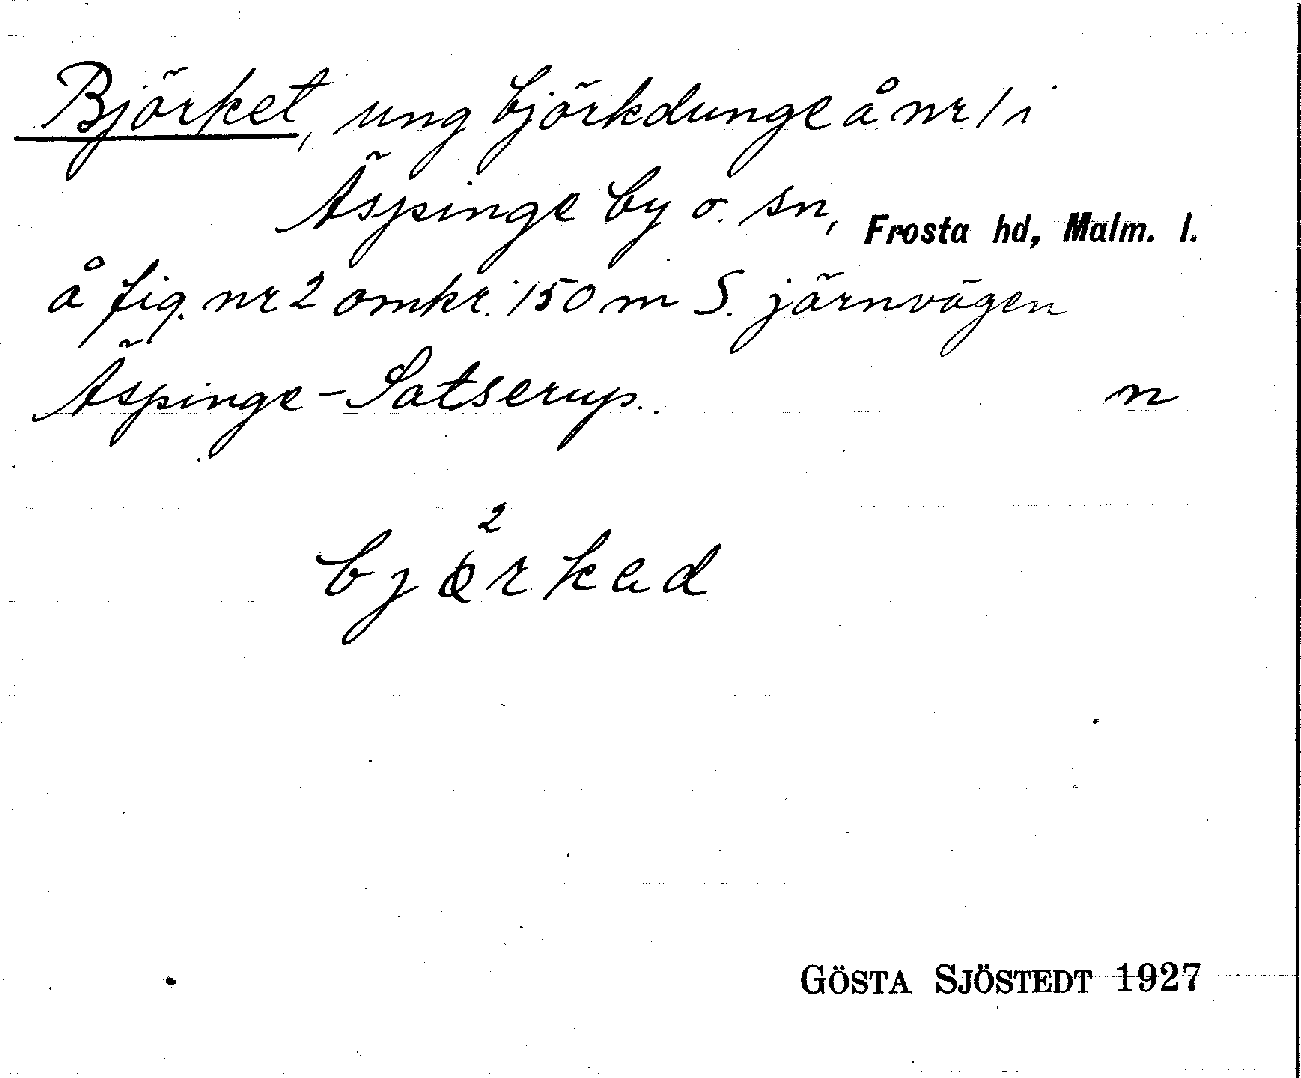 Björket, ung björkdunge å nr 1 i
Äspinge by o. sn, Frosta hd, Malm. l.
å fig. nr 2 omkr. 150 m S. järnvägen
Äspinge-Satserup. n
2
bjærkad
GÖSTA SJÖSTEDT 1927